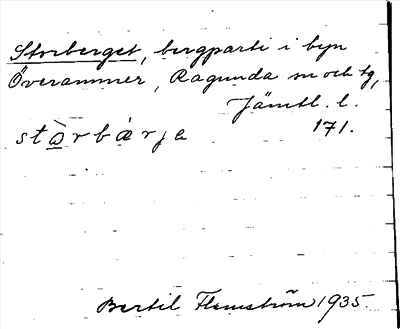 Storberget, bergparti i byn
Överammer, Ragunda sn och tg,
Jämtl. l.
stò̲rbärje
171.
Bertil Flemström 1935.